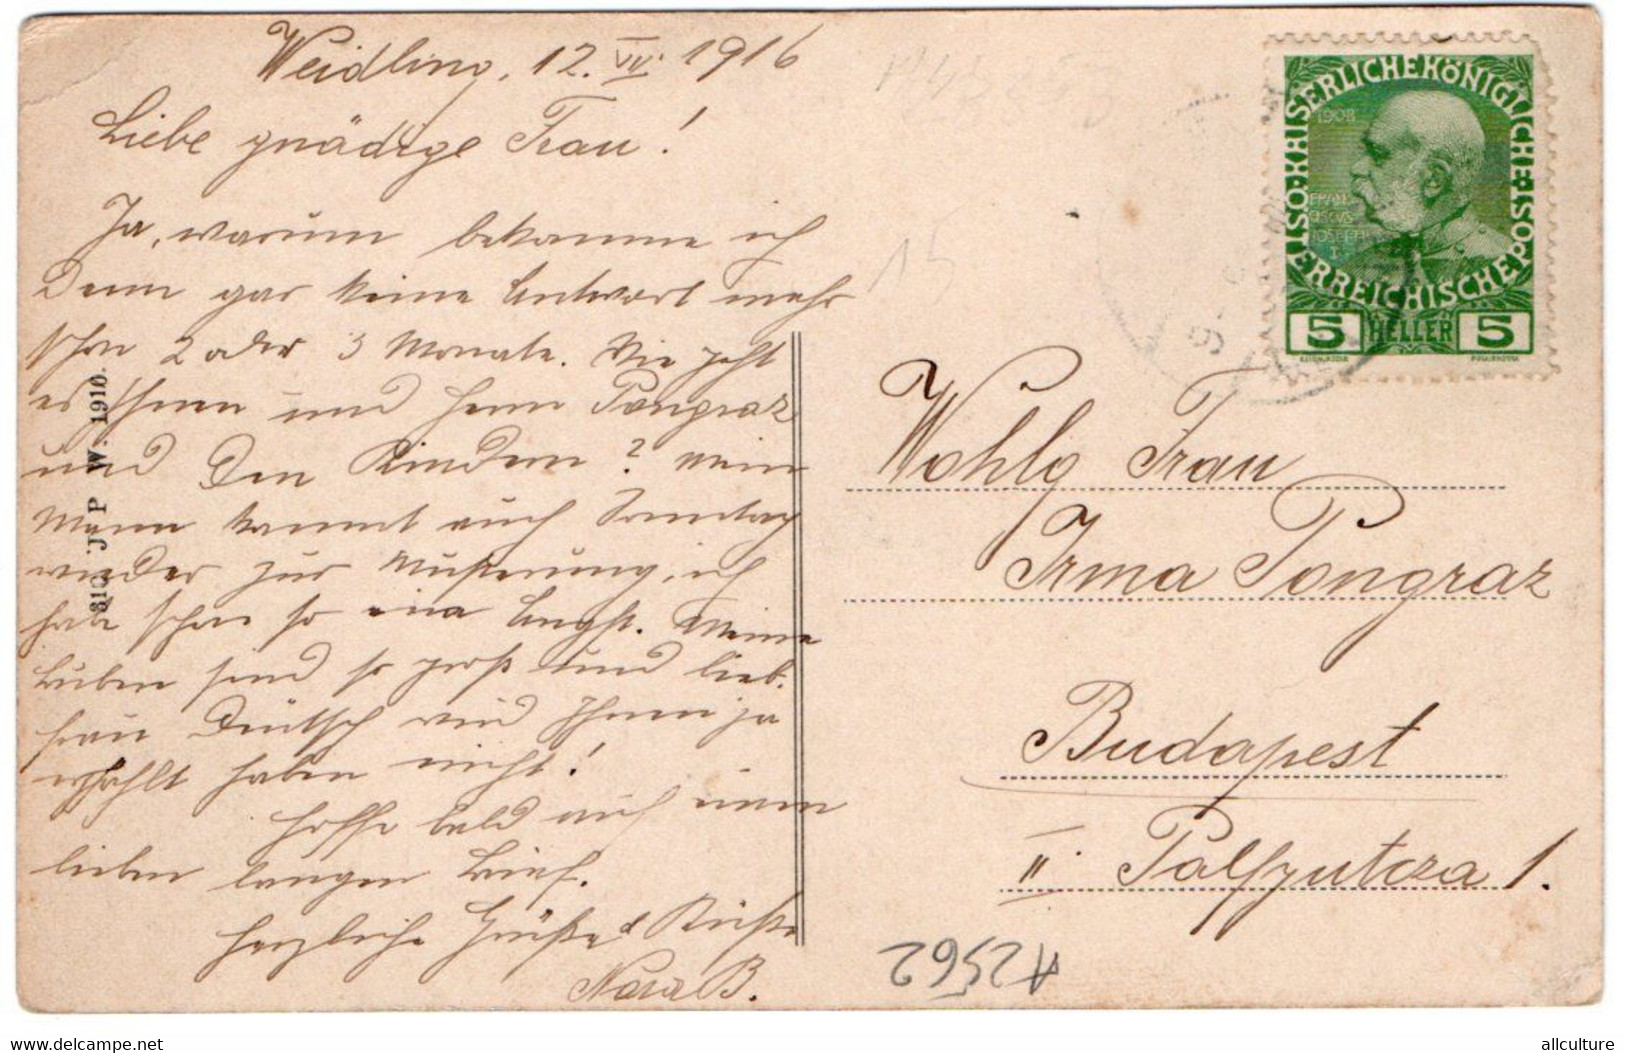 Weidling, 12. VII. 1916
Liebe gnädige Frau!
Ja, warum bekomme ich
denn gar keine Antwort mehr
schon 2 oder 3 Monate. Wie geht
es Ihnen und Herrn Pongraz
und den Kindern? Mein
Mann kommt auch Sonntag
wieder zur Musterung, ich
habe schon so eine Angst. Meine
Buben sind so groß und lieb.
Frau Deutsch wird Ihnen ja
erzählt haben nicht!
Hoffe bald auch einen
lieben langen Brief.
Herzliche Grüße & Küße
B.
310. J. P. W. 1910.
KAISERLICHEKÖNIGLICHE
ÖSTERREICHISCHE POST
1908
FRAN
CISCVS
IOSEPH
I
5 HELLER 5
15
Wohlg Frau
Irma Pongraz
Budapest
II. Palfyutcza 1.
A2562
www.delcampe.net
allculture